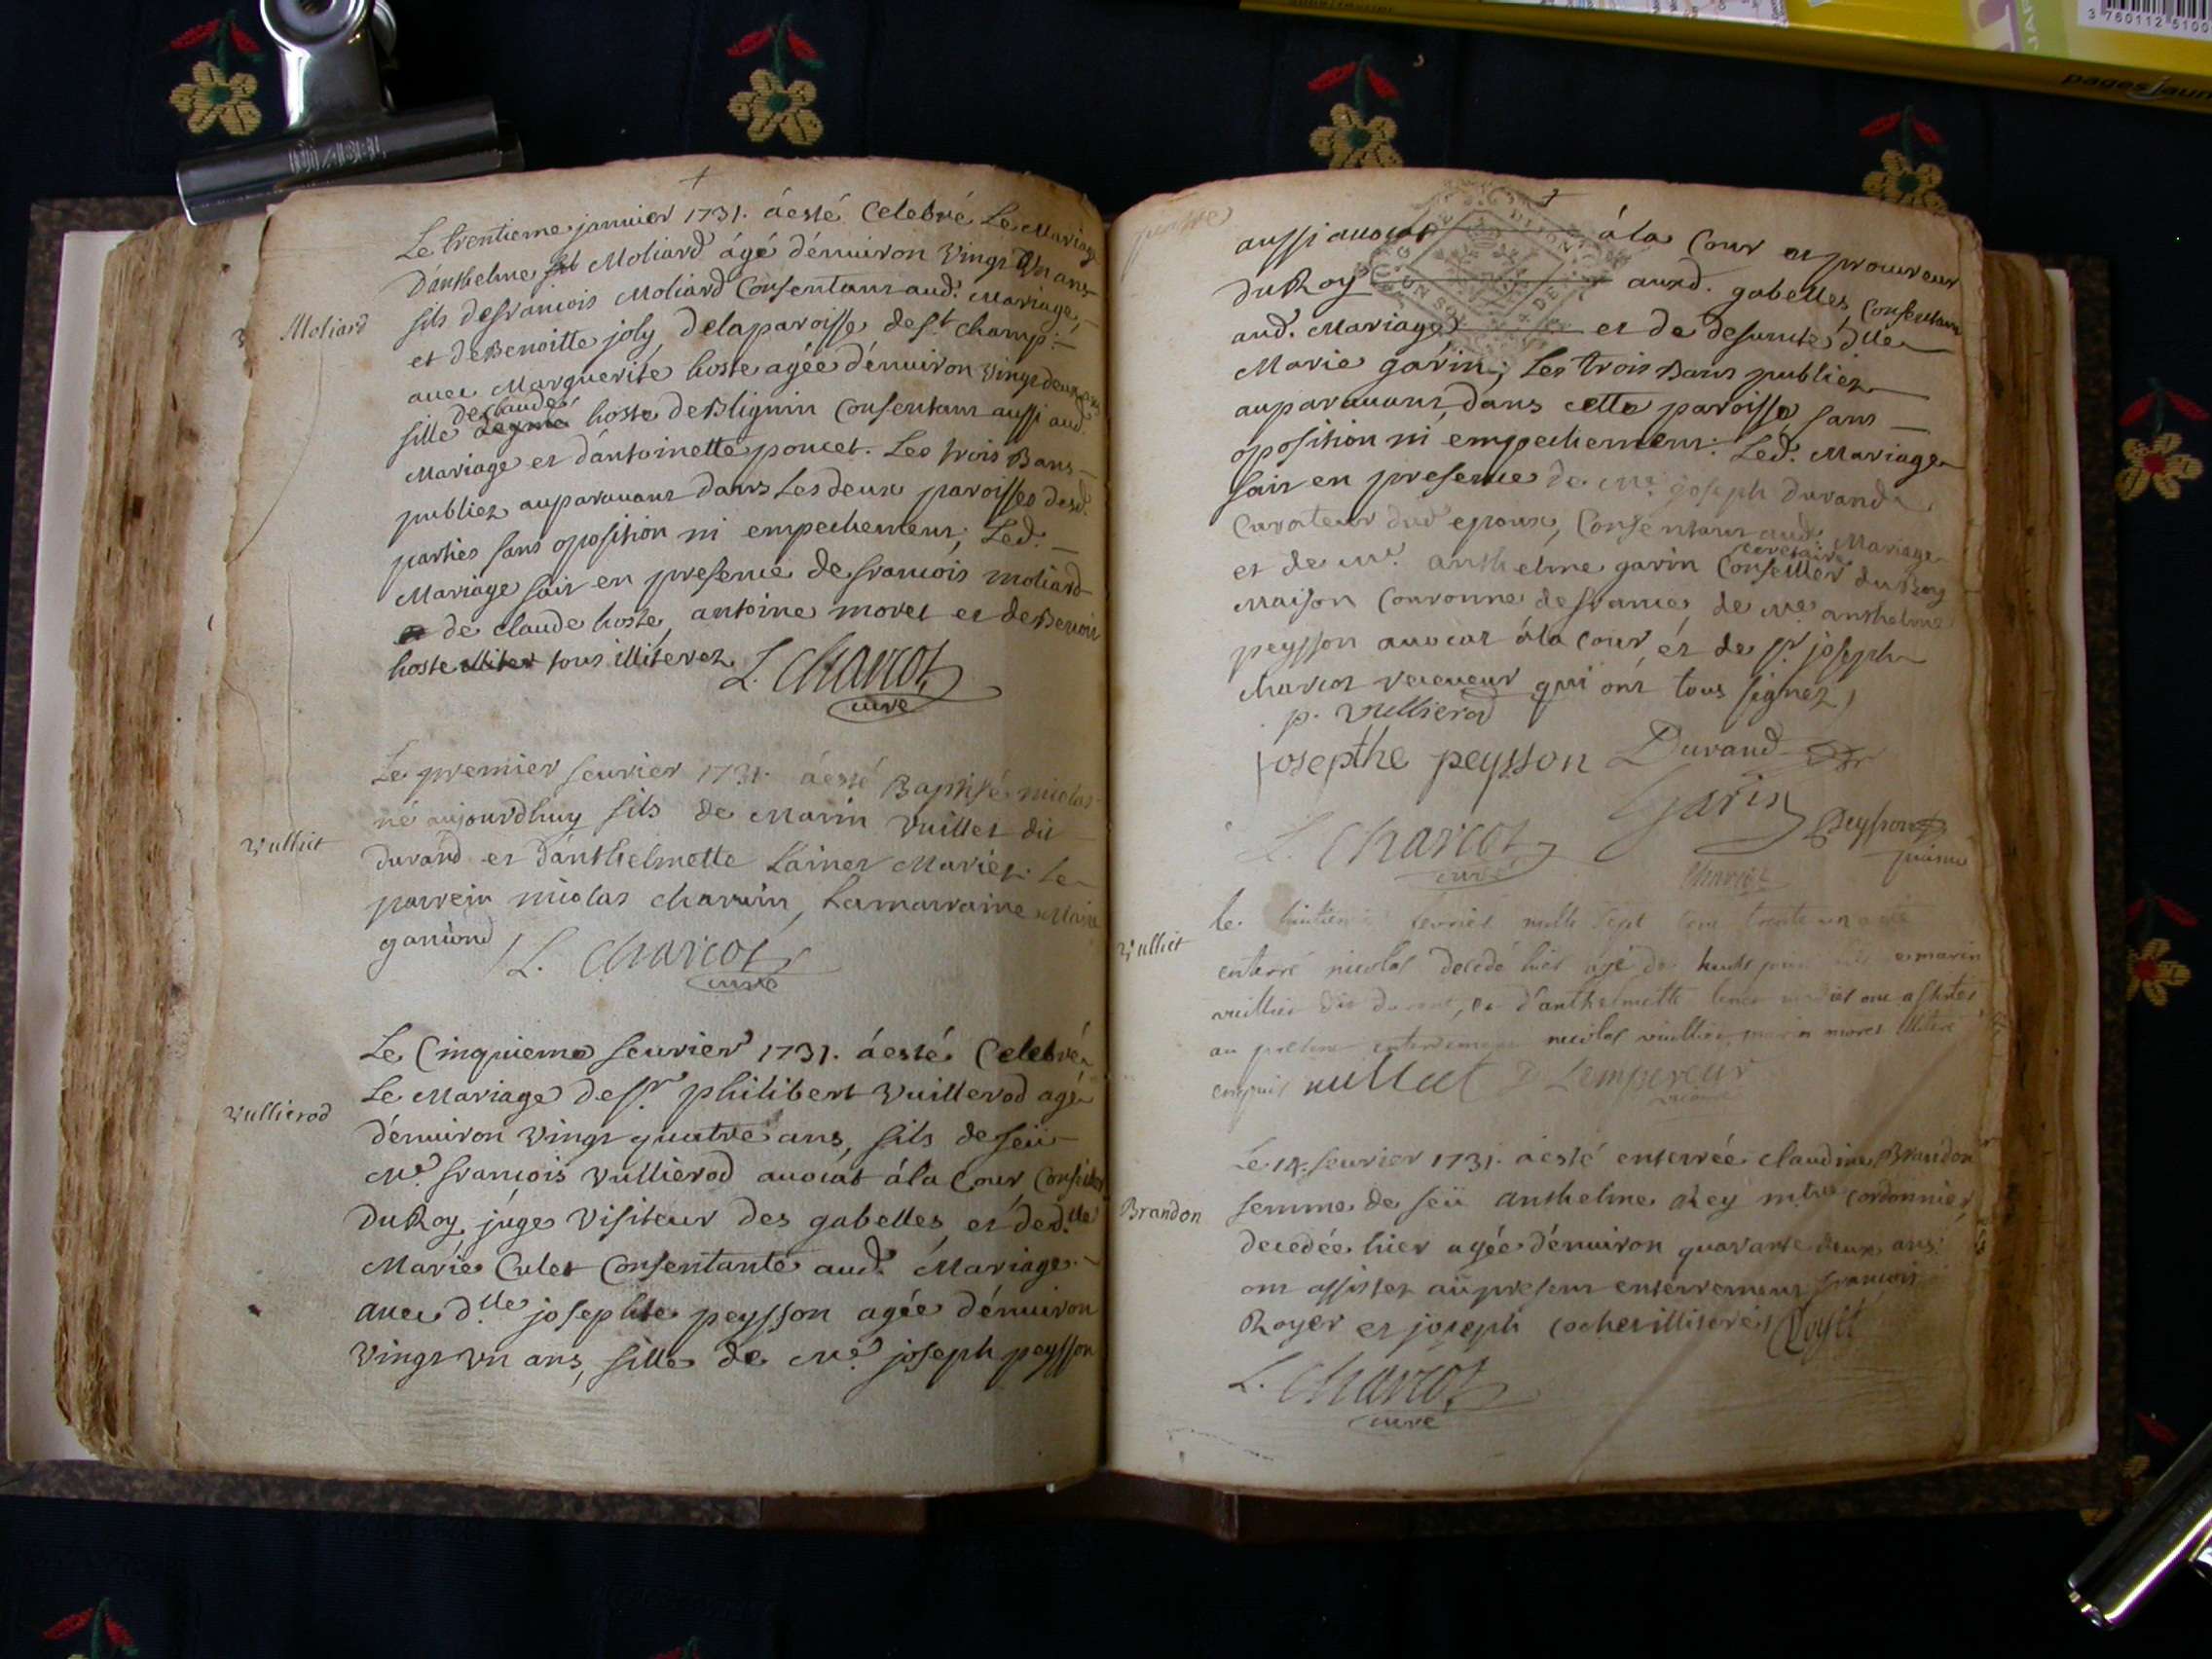 Le trentieme janvier 1731. a esté Celebré Le Mariage
D'anthelme Moliard agé d'environ vingt Un ans
Moliard
fils de francois Moliard Consentant aud. Mariage,
et de Benoitte joly, de la paroisse de st. Champ:
avec Marguerite hoste agée d'environ vingt deux ans
fille de claude hoste de Blignin Consentant aussi aud.
Mariage et d'antoinette poncet. Les trois Bans
publiez auparavant dans Les deux paroisses desd.
parties sans oposition ni empechement, Led.
Mariage fait en presence de francois moliard
de claude hoste, antoine morel et de Benoit
hoste tous illiterez L. Charcot
curé
Le premier fevrier 1731. a esté Baptisé nicolas
né aujourdhuy fils de Marin Vuillet dit
Vulliet
durand et d'anthelmette Lainer Mariez. Le
parrein nicolas charvin, La marraine Marie
ganiond L. Charcot
curé
Le Cinquieme fevrier 1731. a esté Celebré
Le Mariage de sr. philibert Vuillerod agé
Vullierod
d'environ vingt quatre ans, fils de feü
Me. francois Vullierod avocat á la Cour Conseiller
Du Roy, juge Visiteur des gabelles, et de dlle
Marie Culet Consentante aud. Mariage.
avec dlle josephte peysson agée d'environ
vingt vn ans, fille de Me. joseph peysson
aussi avocat á la Cour et procureur
Du Roy auxd. gabelles, Consentant
aud. Mariage et de defunte dlle
Marie garin, Les trois Bans publiez
auparavant dans cette paroisse sans
oposition ni empechement. Led. Mariage
fait en presence de Me. joseph durand
Curateur dud epoux, Consentant aud. Mariage
et de Me. anthelme garin Conseiller secretaire du Roy
Maison Couronne de france, de Me. anthelme
peysson avocat á la Cour, et de sr. joseph
charcot receveur qui ont tous signez,
p. Vullierod
josepthe peysson Durand
Garin
L. Charcot Peysson
curé puisné
Charcot
le huitieme fevrier mille sept cent trente un a esté
Vulliet
enterré nicolas decedé hier agé de huit jours fils a marin
vuilliet dit durand, et d'anthelmette mariés ont assistés
au present enterrement nicolas vuilliet, marin morel illiteré
enquis vulliet D Lempereur
vicaire
Le 14. fevrier 1731. a esté enterrée claudine Brandon
Brandon
femme de feü anthelme Rey mtre cordonnier,
decedée hier agée d'environ quarante deux ans.
ont assistez aü present enterrement francois
Royer et joseph cochet illiterés
L. Charcot
curé
pages jaunes
3 760112 5100